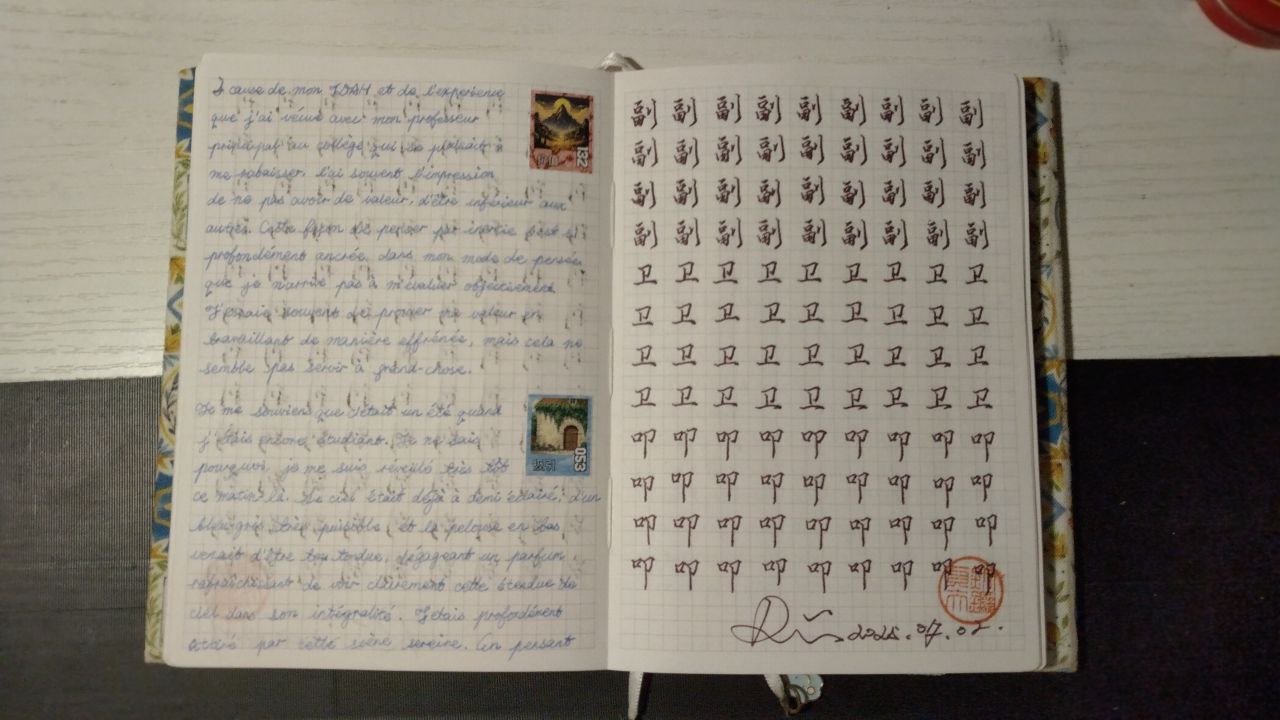 À cause de mon TDAH et de l'expérience
que j'ai vécue avec mon professeur
principal au collège qui se plaisait à
me rabaisser, j'ai souvent l'impression
de ne pas avoir de valeur, d'être inférieur aux
autres. Cette façon de penser par inertie s'est si
profondément ancrée dans mon mode de pensée
que je n'arrive pas à m'évaluer objectivement.
J'essaie souvent de prouver ma valeur en
travaillant de manière effrénée, mais cela ne
semble pas servir à grand-chose.
132
Je me souviens que c'était un été quand
j'étais encore étudiant. Je ne sais
pourquoi, je me suis réveillé très tôt
ce matin-là. Le ciel était déjà à demi éclairé, d'un
bleu-gris très paisible, et la pelouse en bas
venait d'être tondue, dégageant un parfum
rafraîchissant de voir clairement cette étendue de
ciel dans son intégralité. J'étais profondément
par cette scène sereine. En pensant
053
副 副 副 副 副 副 副 副 副
副 副 副 副 副 副 副 副 副
副 副 副 副 副 副 副 副 副
副 副 副 副 副 副 副 副 副
卫 卫 卫 卫 卫 卫 卫 卫 卫
卫 卫 卫 卫 卫 卫 卫 卫 卫
卫 卫 卫 卫 卫 卫 卫 卫 卫
卫 卫 卫 卫 卫 卫 卫 卫 卫
叩 叩 叩 叩 叩 叩 叩 叩 叩
叩 叩 叩 叩 叩 叩 叩 叩 叩
叩 叩 叩 叩 叩 叩 叩 叩 叩
叩 叩 叩 叩 叩 叩 叩 叩 叩